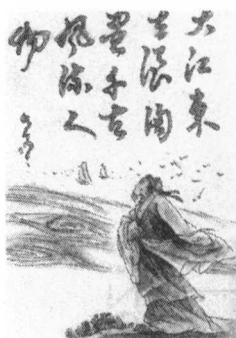 大江東
去浪淘
盡千古
風流人
物